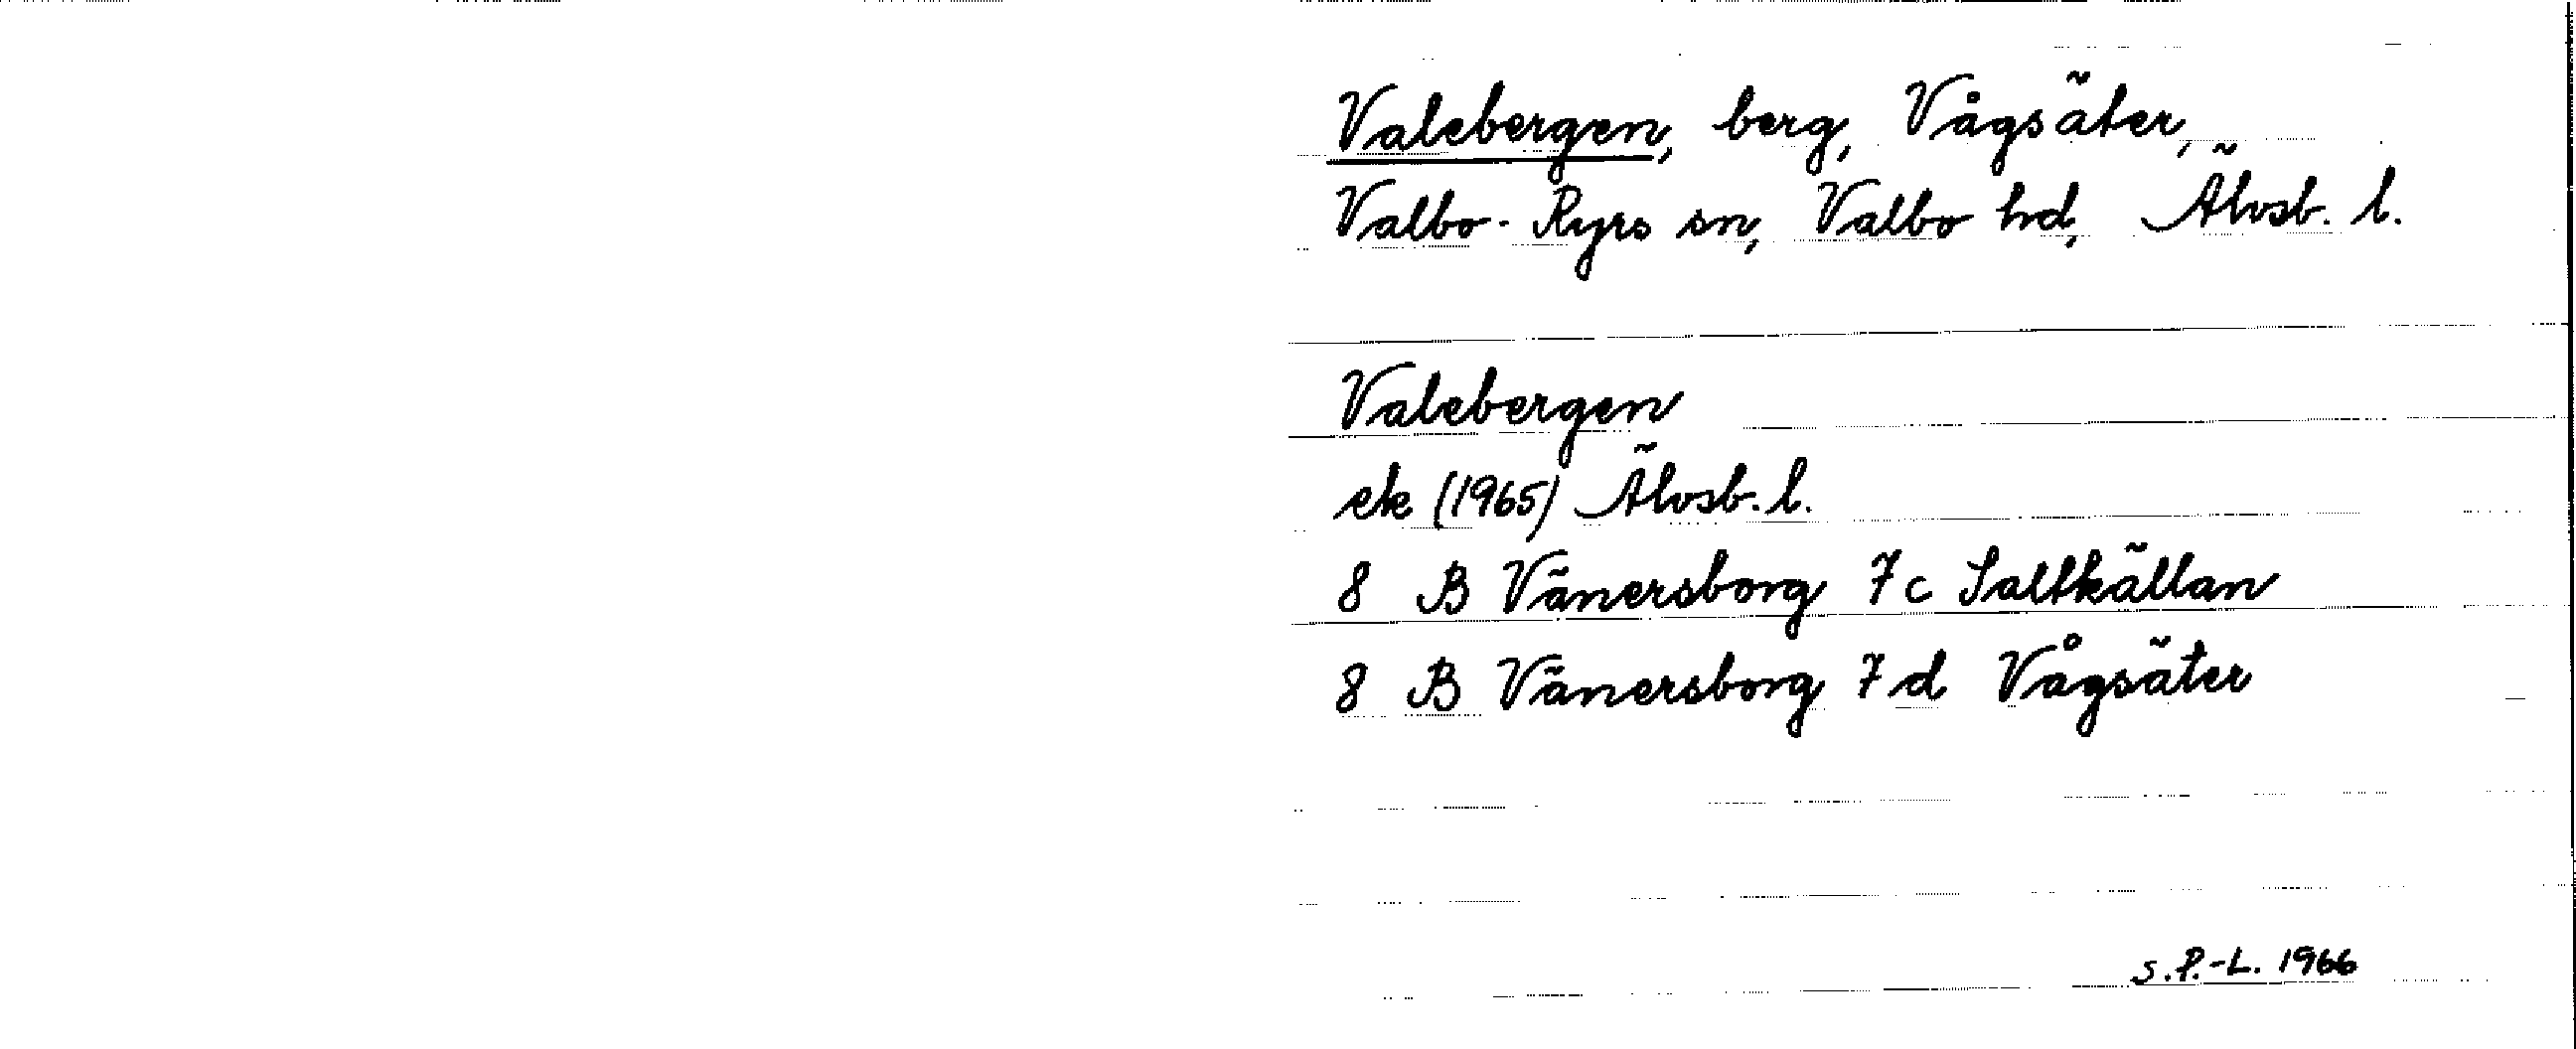 Valebergen, berg, Vågsäter,
Valbo-Ryrs sn, Valbo hd, Älvsb. l.
Valebergen
ek (1965) Älvsb. l.
8 B Vänersborg 7c Saltkällan
8 B Vänersborg 7d Vågsäter
S.P.-L. 1966